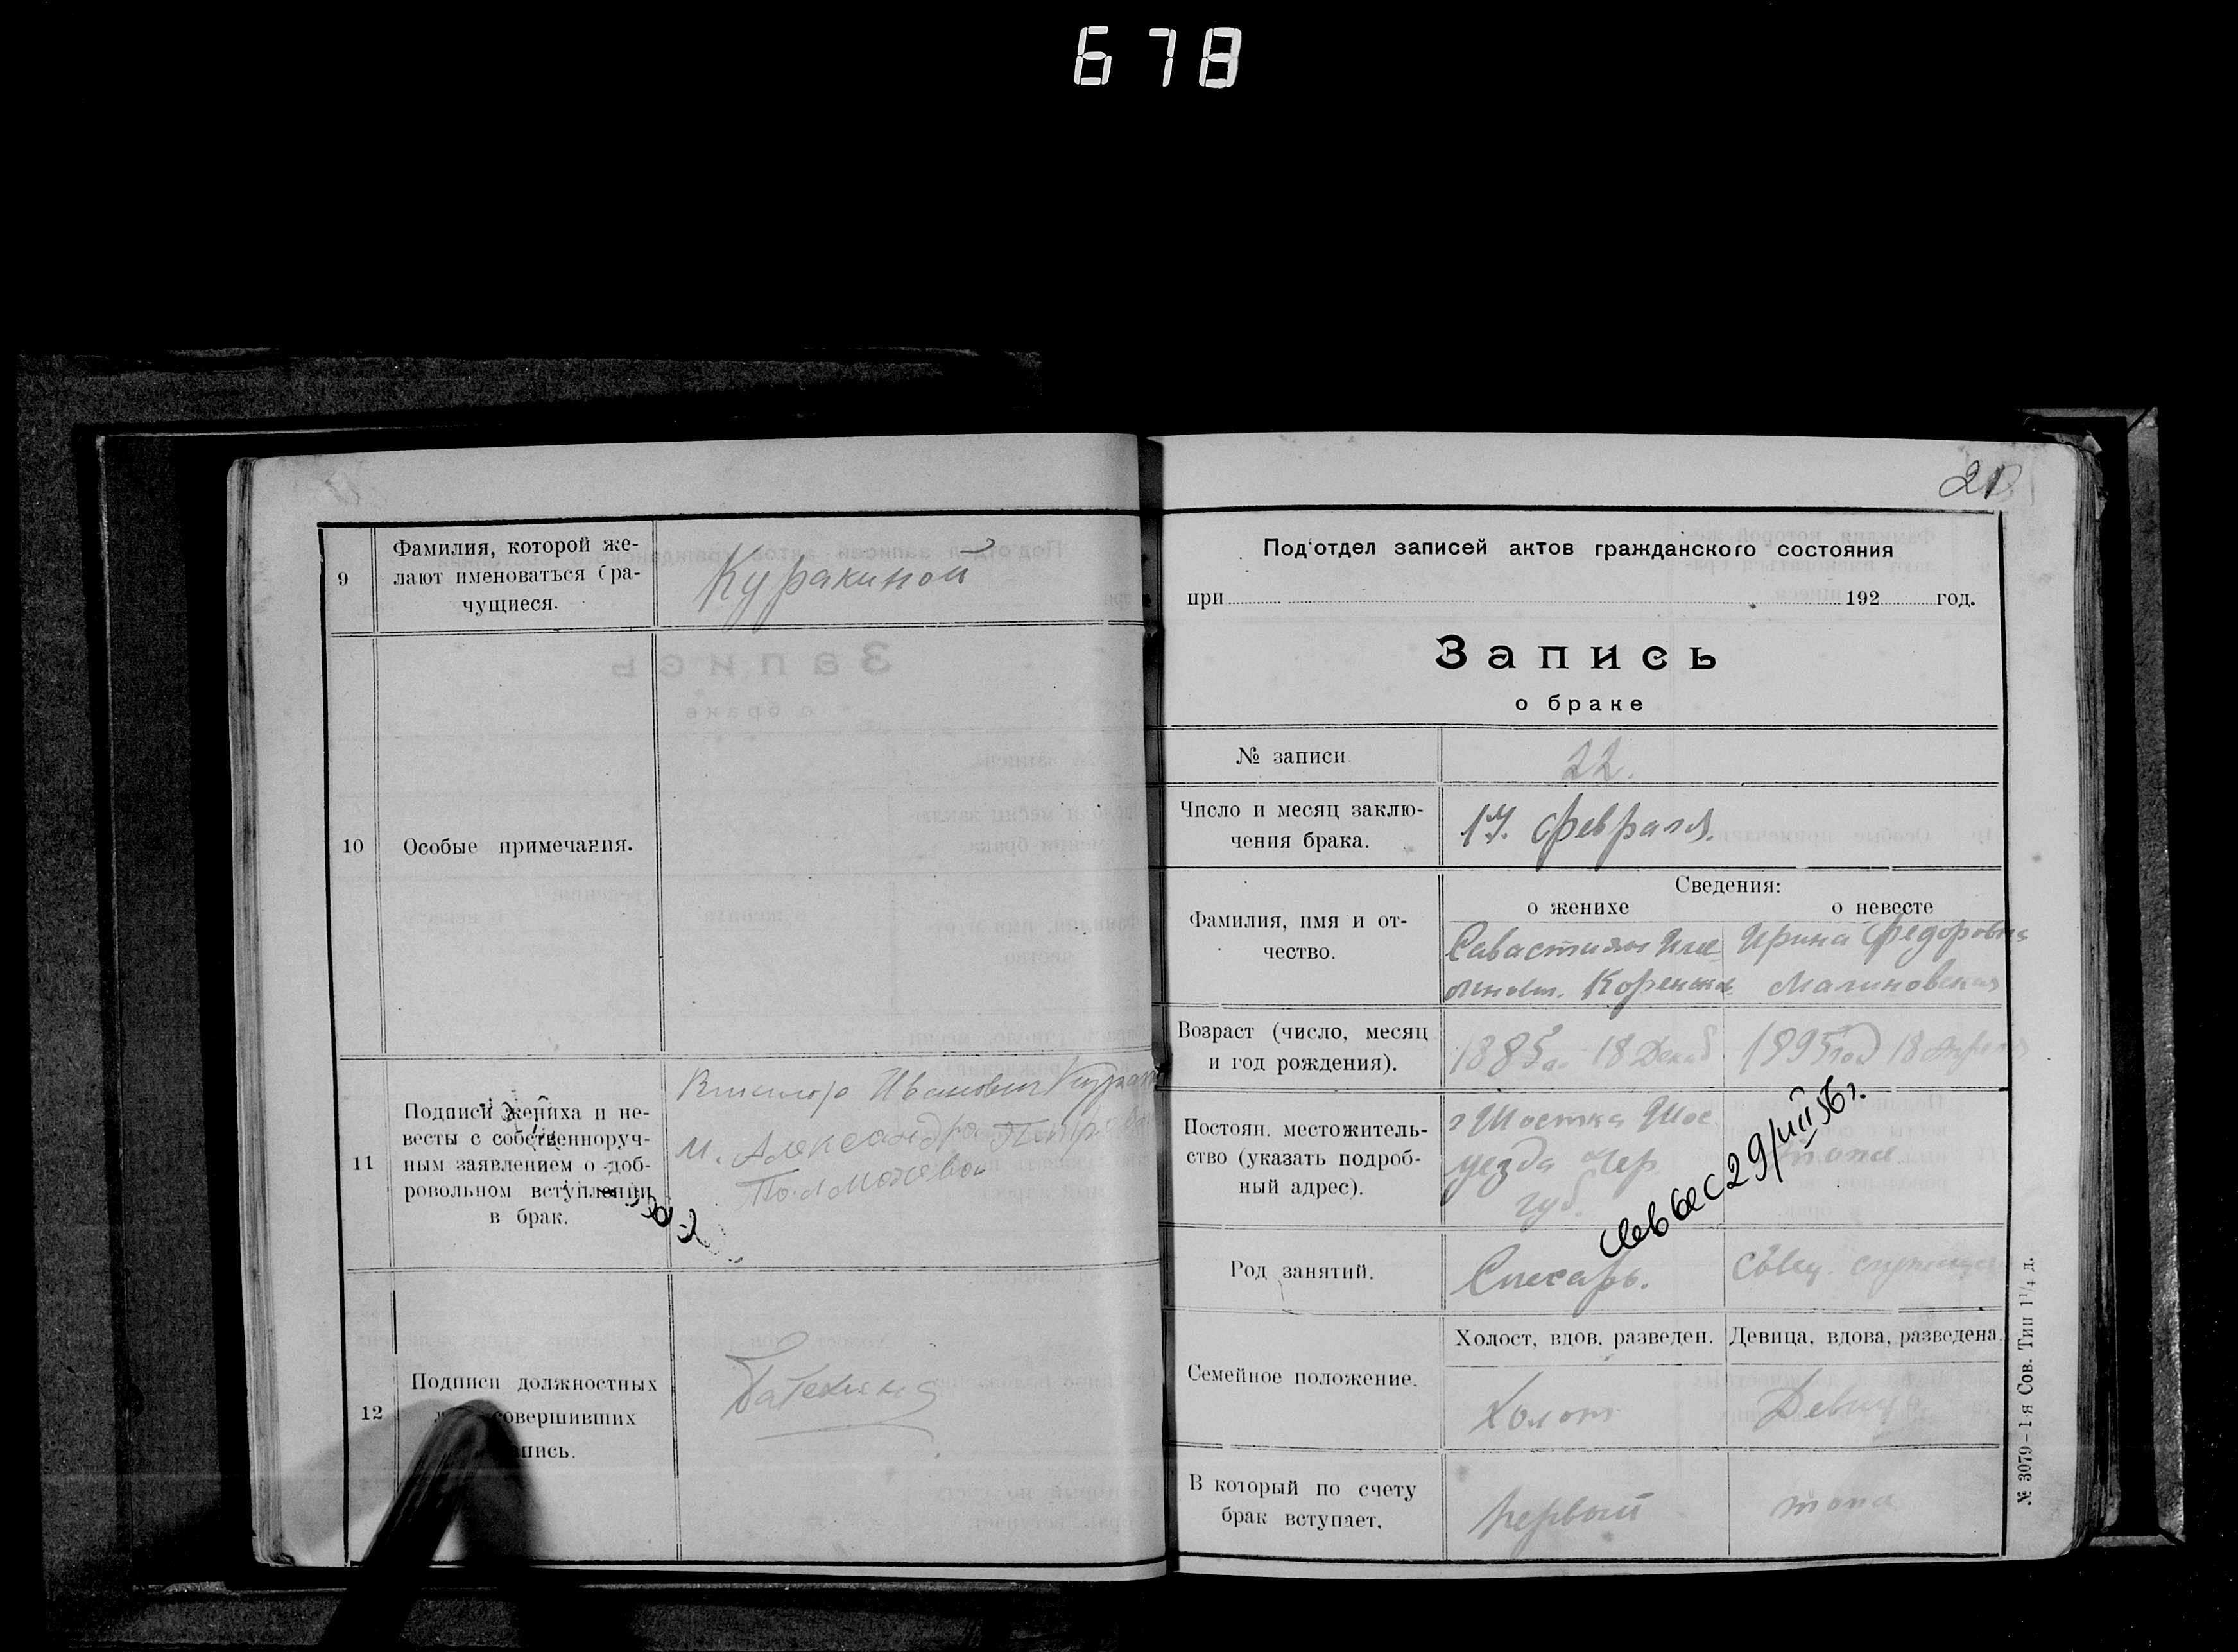 678
9
Фамилия, которой же-
лают именоваться бра-
чущиеся.
Куракиной
10
Особые примечания.
11
Подписи жениха и не-
весты с собственноруч-
ным заявлением о доб-
ровольном вступлении
в брак.
Виктор Иванович
и. Александра
12
Подписи должностных
совершивших
запись.
21
Под'отдел записей актов гражданского состояния
при 192 год.
Запись
о браке
№ записи
22.
Число и месяц заклю-
чения брака.
17. февраля.
Сведения:
о женихе
о невесте
Фамилия, имя и от-
чество.
Савастиян
Ирина Федоровна
Малиновская
Возраст (число, месяц
и год рождения).
1885 г. 18 Декаб
1895 год 18 Апреля
Постоян. местожитель-
ство (указать подроб-
ный адрес).
г Шостка Шос.
уезда Чер
губ.
тоже
29/VIII 56 г.
Род занятий.
Слесарь.
Семейное положение.
Холост, вдов, разведен.
Девица, вдова, разведена.
Холост
Девиц
В который по счету
брак вступает.
первый
тоже
№ 3079-1-я Сов. Тип 1 1/4 д.